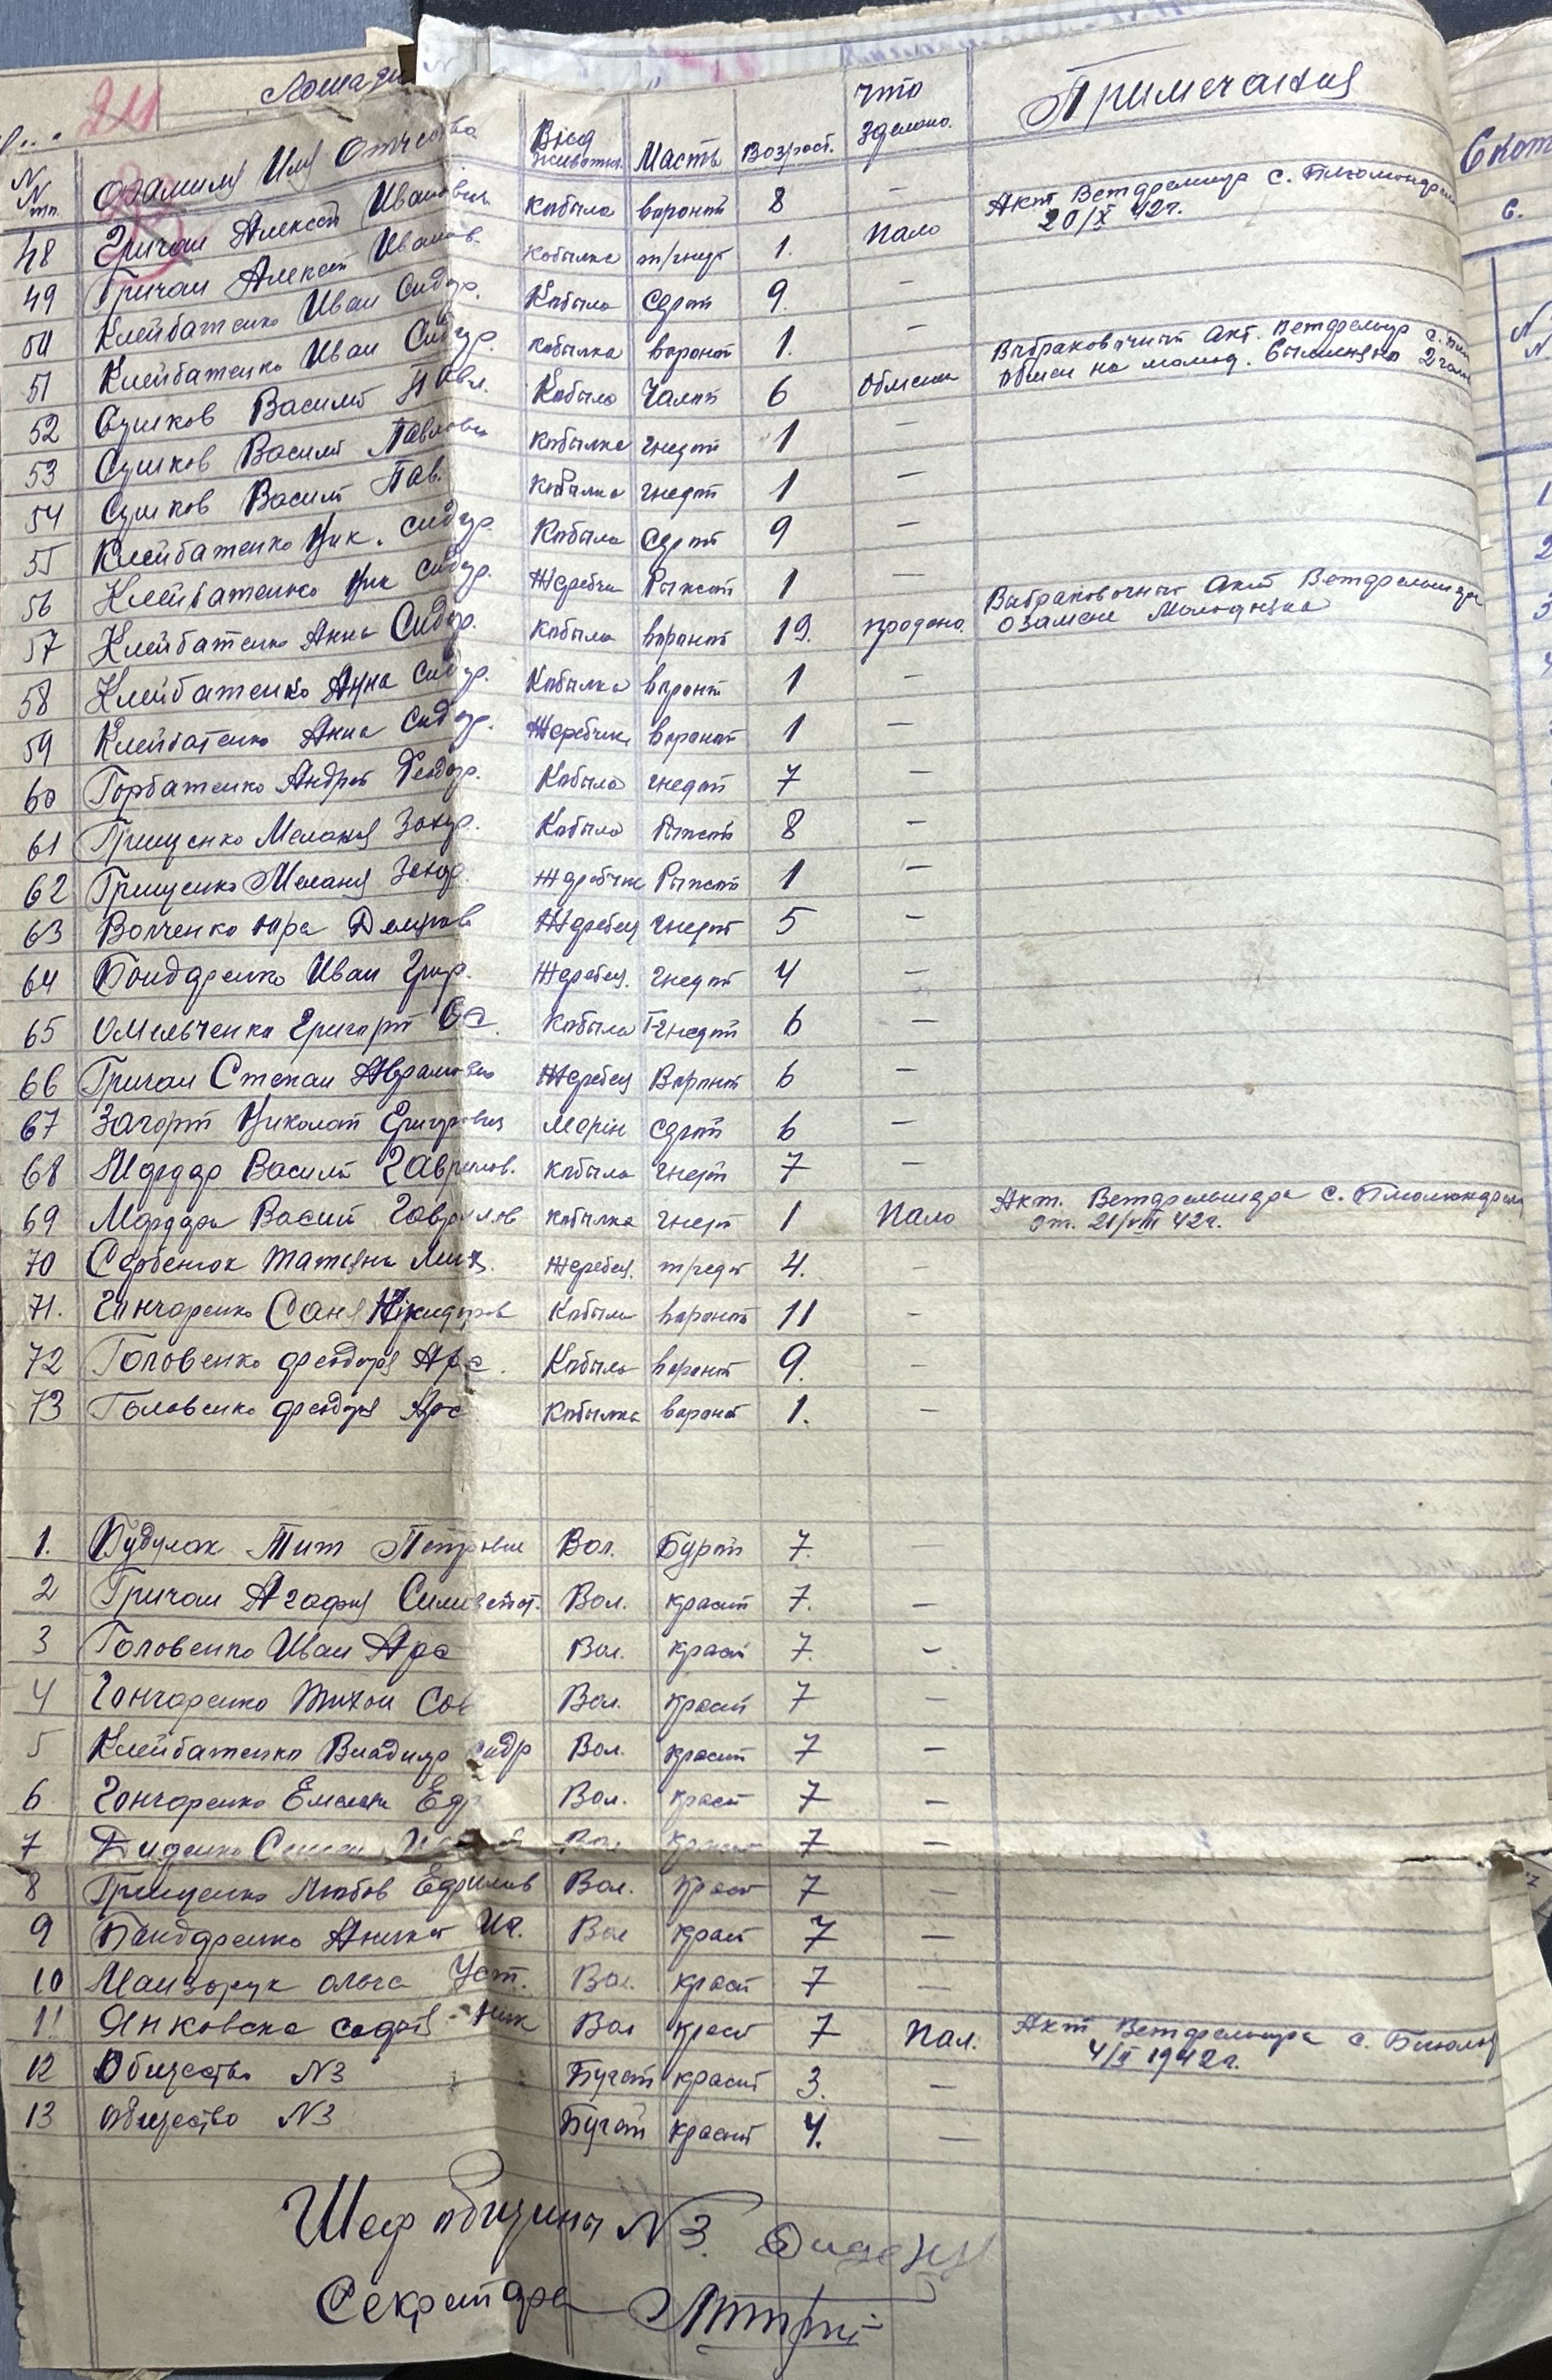 24 Лошади
N N пп. Фамилия Имя Отчество Вид животн. Масть Возраст. Что зделано. Примечания
48 Гричан Алексей Иванович Кабыла вороной 8 —
49 Гричан Алексей Иванов. Кобылка т/гнед 1. Пало Акт Ветфельшера с. 20/X 42 г.
50 Клейбатенко Иван Сидор. Кабыла Серой 9. —
51 Клейбатенко Иван Сидор. кобылка вороной 1. —
52 Сушков Василий Павл. Кабыла Чалой 6 Обмен Выбраковочный Акт. Ветфельшер с.
Обмен на молод. 2
53 Сушков Василий Павлович кобылка гнедой 1 —
54 Сушков Василий Пав. кобылка гнедой 1 —
55 Клейбатенко Ник. Сидор. Кабыла Серой 9 —
56 Клейбатенко Ник Сидор. Жеребчик Рыжой 1 —
57 Клейбатенко Анна Сидор. Кабыла вороной 19. продано. Выбраковочный Акт Ветфельшера
Озамене Молодняка
58 Клейбатенко Анна Сидор. Кабылка вороной 1 —
59 Клейбатенко Анна Сидор. Жеребчик вороной 1 —
60 Горбатенко Андрей Феодор. Кабыла гнедой 7 —
61 Грищенко Мелания Захар. Кабыла Рыжой 8 —
62 Грищенко Мелания Захар. Жеребчик Рыжой 1 —
63 Волченко Юра Жеребец гнедой 5 —
64 Бондаренко Иван Григ. Жеребец. гнедой 4 —
65 Омельченко Григорий Ос. Кабыла Гнедой 6 —
66 Гричан Степан Аврамович Жеребец Вороной 6 —
67 Загорй Николай Григорович Мерін серой 6 —
68 Мардарь Василий Гаврилов. кабыла гнедой 7 —
69 Мардарь Василий Гаврилов кобылка гнедой 1 Пало Акт. Ветфельшера с.
от. 21/VIII 42 г.
70 Сербенюк Татяна Мих. Жеребец. т/гнед 4. —
71. Гончаренко Саня Кабыла вороной 11 —
72 Головенко Феодор Арс. Кабыла вороной 9. —
73 Головенко Феодор Арс Кабылка вороной 1. —
1. Будулак Тит Петрович Вол. Бурой 7. —
2 Гричан Агафия Вол. красий 7. —
3 Головенко Иван Арс Вол. красий 7. —
4 Гончаренко Тихон Сав Вол. красий 7 —
5 Клейбатенко Владимир Сидр Вол. красий 7 —
6 Гончаренко Емельян Вол. красий 7 —
7 Диденко Семен Вол красий 7 —
8 Грищенко Любов Ефимов Вол. красий 7 —
9 Бандаренко Аникей Иг. Вол красий 7 —
10 Манзарук Ольга Уст. Вол. красий 7 —
11 Янковска Ник Вол красий 7 Пал. Акт Ветфельшера с.
4/II 1942 г.
12 Общество N3 Бугай красий 3. —
13 общество N3 Бугай красий 4. —
Шеф общины N 3. Диденко
Секретарь
Скот